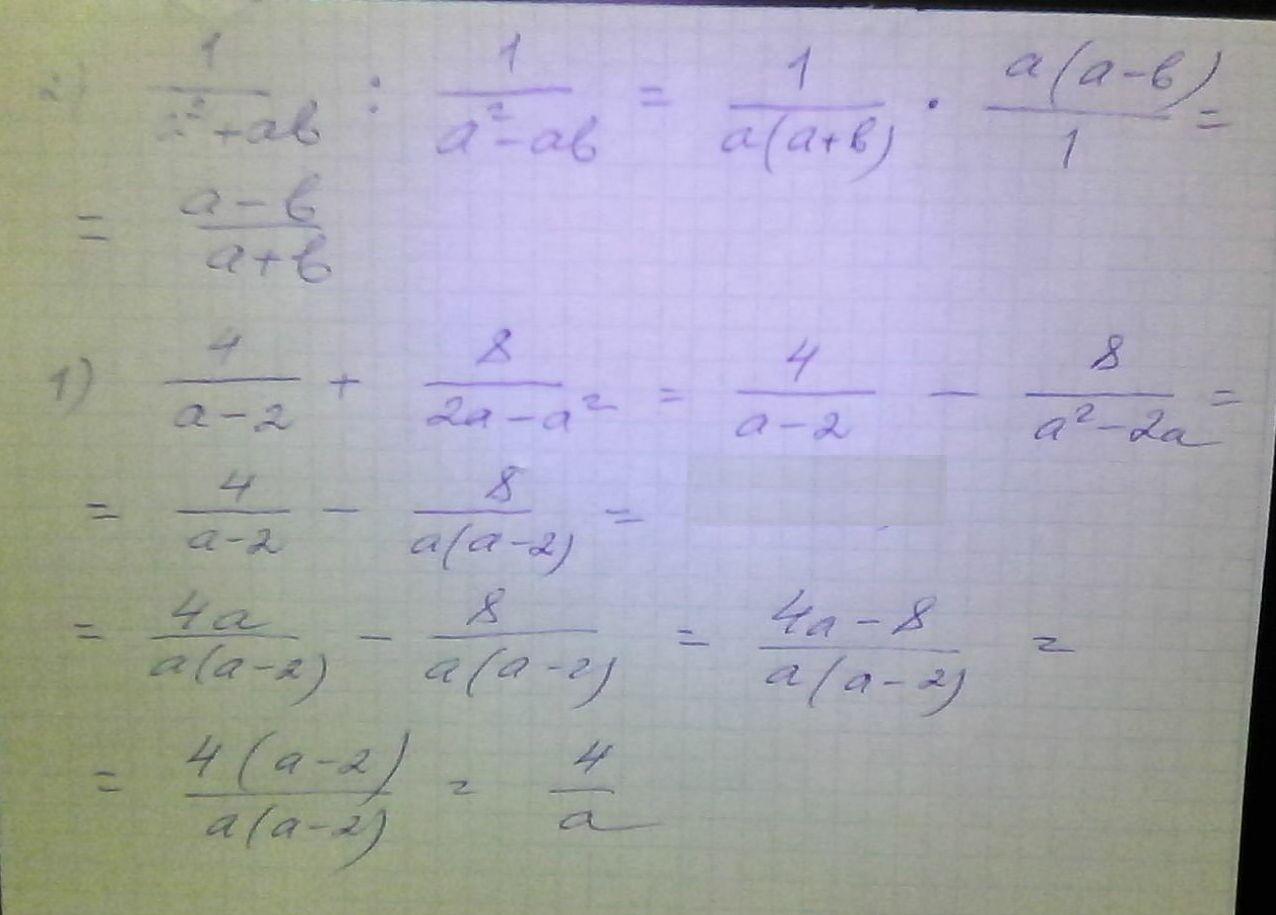 2) 1/(a²+ab) : 1/(a²-ab) = 1/(a(a+b)) · a(a-b)/1 =
= (a-b)/(a+b)
1) 4/(a-2) + 8/(2a-a²) = 4/(a-2) - 8/(a²-2a) =
= 4/(a-2) - 8/(a(a-2)) =
= 4a/(a(a-2)) - 8/(a(a-2)) = (4a-8)/(a(a-2)) =
= 4(a-2)/(a(a-2)) = 4/a